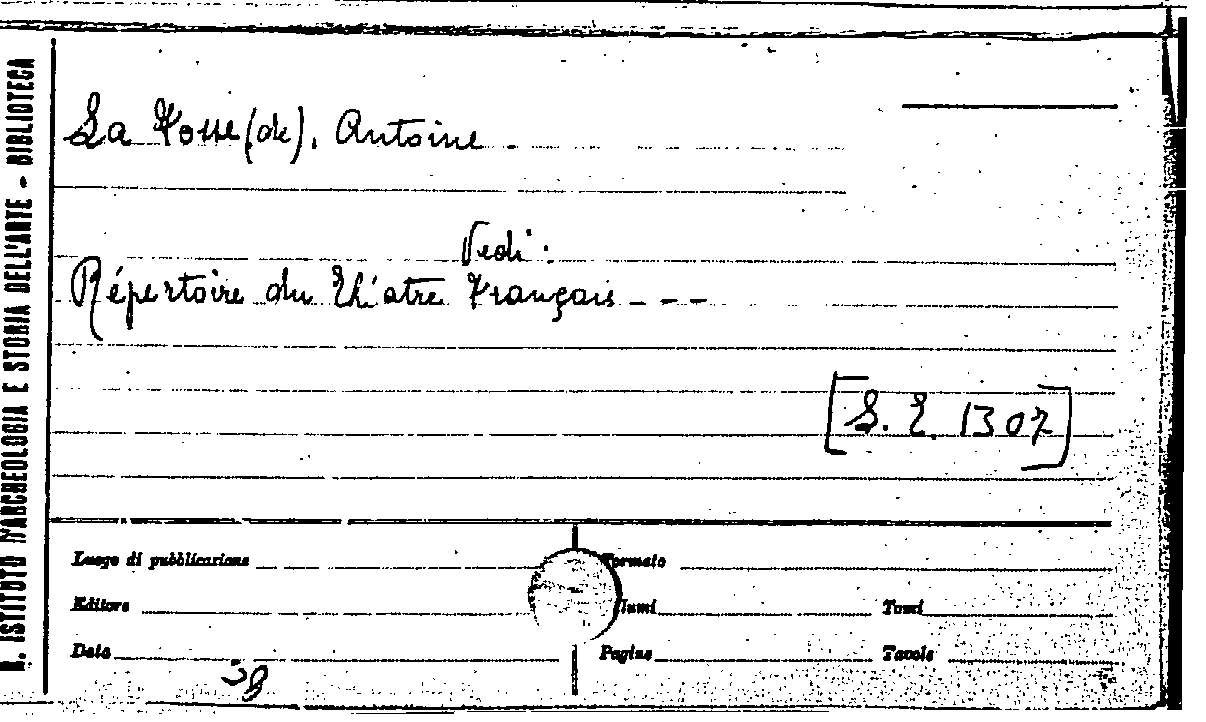 R. ISTITUTO D'ARCHEOLOGIA E STORIA DELL'ARTE - BIBLIOTECA
La Fosse (de), Antoine.
Vedi:
Répertoire du Théatre Français - - -
[S. 1307]
Luogo di pubblicazione Formato
Editore lumi Tomi
Data Pagine Tavole